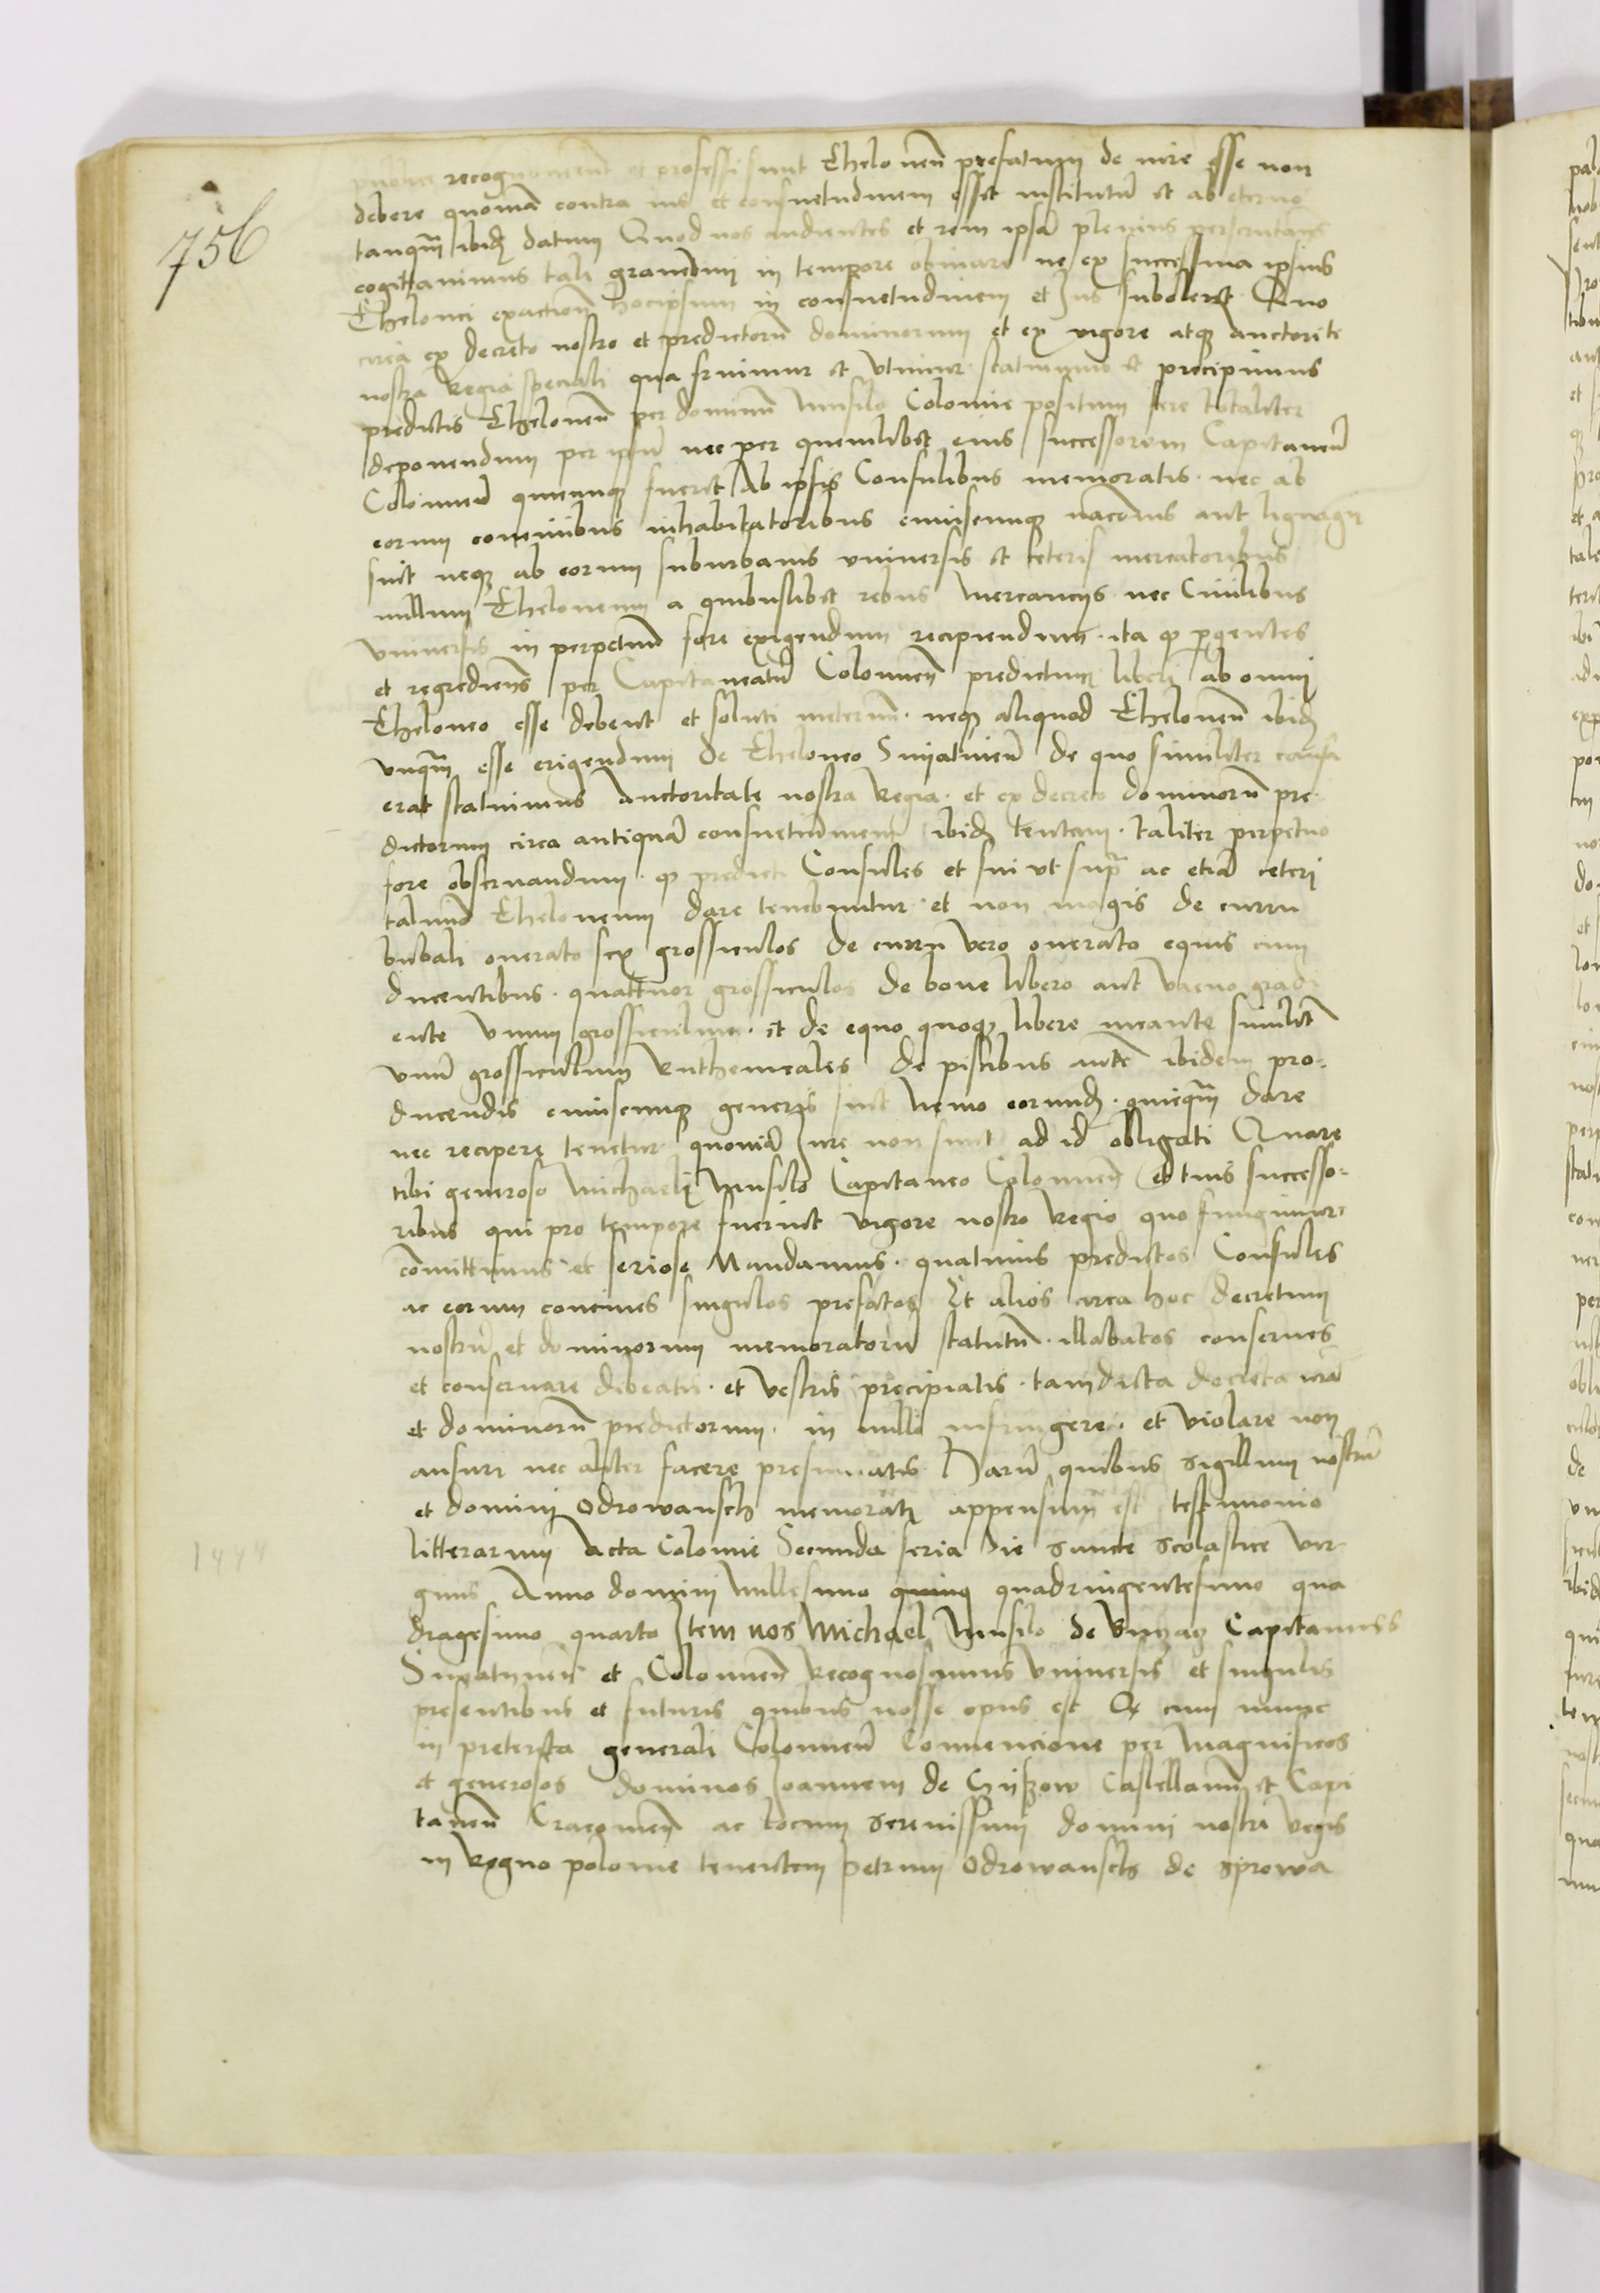 756
recognoverunt et professi sunt Theloneū prefatum de iure esse non
debere quoniā contra ius et consuetudinem esset institutū et ab eterno
tanqȝ ibidȝ datum Quod nos audientes et rem ipsā plenius perscrutantes
cogitavimus tali gravedini in tempore obviare ne ex successiva ipsius
Thelonei exaction hocipsum in consuetudinem et Jus suboleret Quo
circa ex decreto nostro et predictorū dominorum et ex vigore atqȝ auctorite
nostra Regia speciali qua fruimur et Vtimur statuimus et precipimus
predictis Theloneū per dominū Musilo Colomie positum fore totaliter
deponendum per ipsū nec per quemlibet eius successorem Capitaneū
Colomieñ quicunqȝ fuerit Ab ipsis Consulibus memoratis nec ab
eorum concivibus inhabitatoribus cuiuscunqȝ nacōnis aut
sint neqȝ ab eorum suburbanis universis et ceteris mercatoribus
nullum Theloneum a quibuslibet rebus Mercanciis nec Civilibus
Vniversis in perpetuū fore exigendum recipiendum ita qȝ pgentes
et regredientes per Capitaneatū Colomieñ predictum liberi ab omni
Theloneo esse debent et soluti ineternū neqȝ aliquod Theloneū ibidȝ
vnqȝ esse erigendum De Theloneo Snyatineñ De quo similiter causa
erat statuimus Auctoritate nostra Regia et ex decreto dominorū pre
dictorum circa antiquā consuetudinem ibidȝ tentam taliter perpetuo
fore observandum qȝ predicti Consules et sui vt supra ac etiā ceteri
talium Theloneum dare tenebuntur et non magis de curru
bubali onerato sex grossiculos de curru vero onerato equis cum
ducentibus quattuor grossiculos De bove libero aut vacuo gradi
ente Vnum grossiculum et de equo quoqȝ libere meante similit
Vnū grossiculum Ruthenicales De piscibus autē ibidem pro-
ducendis cuiuscunqȝ generis sint Nemo eorundȝ quicqȝ dare
nec recipere tenetur quoniā Jure non sunt ad id obligati Quare
tibi generoso Michaeli Musilo Capitaneo Colomieñ et tuis successo-
ribus qui pro tempore fuerint vigore nostro Regio quo fungimur
cōmittimus et seriose Mandamus quatinus predictos Consules
ac eorum concives singulos prefatos Et alios circa hoc decretum
nostrū et dominorum memoratorū statutū illabatos conserves
et conservare debeatis et vestris precipiatis tam dicta decreta nrā
et dominorū predictorum in nullo infringere et violare non
ausuri nec aliter facere presumatis Harū quibus sigillum nostrū
et domini Odrowansch memorati appensum est testimonio
litterarum Acta Colomie Secunda feria die sancte Scolastice Vir-
ginis Anno domini Millesimo quadringentesimo qua
dragesimo quarto Item nos Michael Musilo de Capitaneus
Snyatineñ et Colomieñ Recognoscimus Vniversis et singulis
presentibus et futuris quibus nosse opus est Qȝ cum nunc
in preterita generali Colomieñ Convencione per Magnificos
et generosos dominos Joannem de Czyszow Castellanū et Capi
taneū Cracovieñ ac locum serenissimi domini nostri regis
in regno polonie tenentem Petrum Odrowansch de Sprowa
1444